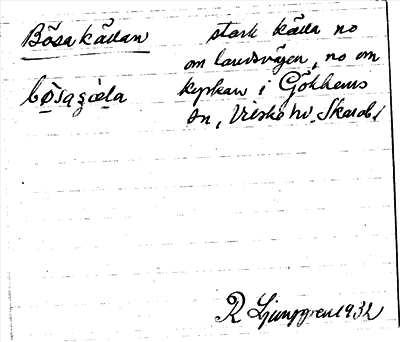 Bösakällan
stark källa no
om landsvägen, no om
kyrkan i Gökhems
sn, Vilske hd. Skarab.
R Ljunggren 1932